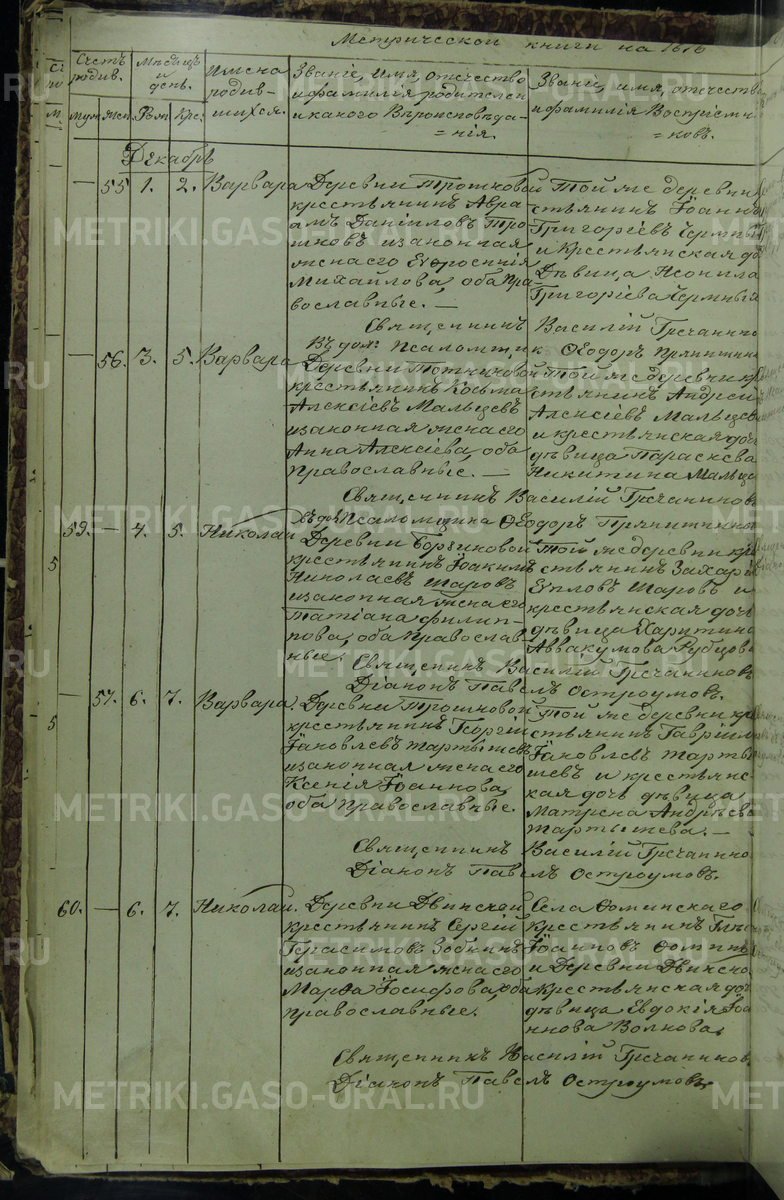 Метрической книги на 1876
Счетъ родив.
Мѣсяцъ и день.
Имена родив-
шихся.
Званіе, имя, отечество
и фамилія родителей
и какого вѣроисповѣда-
=нія.
Званіе, имя, отечество
и фамилія воспріемни-
=ковъ.
м.
муж.
жен.
Рож.
Кре.
Декабрь
— 55 1. 2. Варвара
Деревни Трошковой
крестьянинъ Авра-
амъ Даніиловъ Тро
шковъ и законная
жена его Евфросинія
Михайлова, оба пра-
вославные. —
Той же деревни
стьянинъ Іоаннъ
Григорьевъ Черный
и крестьянская до
дѣвица Неонила
Григоріева Черныш
Священникъ Василій Гречанино
В. дол. Псаломщик Ѳеодоръ Прянишни
— 56. 3. 5. Варвара
Деревни
крестьянинъ Косьма
Алексіевъ Мальцевъ
и законная жена его
Анна Алексіева, оба
православные. —
Той же деревни кр
стьянинъ Андрей
Алексіевъ Мальце
и крестьянская доч
дѣвица Параскева
Никитина Мальц
Священникъ Василій Гречаниновъ
В. дол. Псаломщика Ѳеодоръ Прянишни
59. — 4. 5. Николай
Деревни
крестьянинъ Іоакимъ
Николаевъ Шаровъ
и законная жена его
Татіана Филип-
пова, оба православ-
ные.
Той же деревни кр
стьянинъ Захарі
Шаровъ и
крестьянская дочь
дѣвица Харитина
Аввакумова Рубцова
5
Священникъ Василій Гречаниновъ
Діаконъ Павелъ Остроумовъ.
— 57. 6. 7. Варвара
Деревни Трошковой
крестьянинъ Георгій
Іаковлевъ Мартышевъ
и законная жена его
Ксенія Іоаннова,
оба православные.
Той же деревни кре
стьянинъ Гавріилъ
Іаковлевъ Марты
шевъ и крестьянс-
кая дочь дѣвица
Матрена Андреева
Мартышева. —
5
Священникъ Василій Гречанино
Діаконъ Павелъ Остроумовъ.
60. — 6. 7. Николай.
Деревни Двинской
крестьянинъ Сергій
Герасимовъ Зобнинъ
и законная жена его
Марѳа Іосифова, оба
православные.
Села Фоминскаго
крестьянинъ
Іоанновъ Фоминъ
и Деревни Двинско
крестьянская доч
дѣвица Евдокія Іоа
ннова Волкова.
Священникъ Василій Гречанинов
Діаконъ Павелъ Остроумовъ.
METRIKI.GASO-URAL.RU